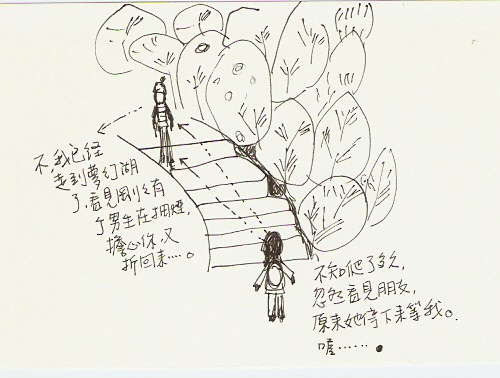 不,我已经
走到夢幻湖
了,看見剛才有
个男生在抽煙,
擔心你,又
折回來……。
不知爬了多久,
忽然看見朋友,
原來她停下來等我。